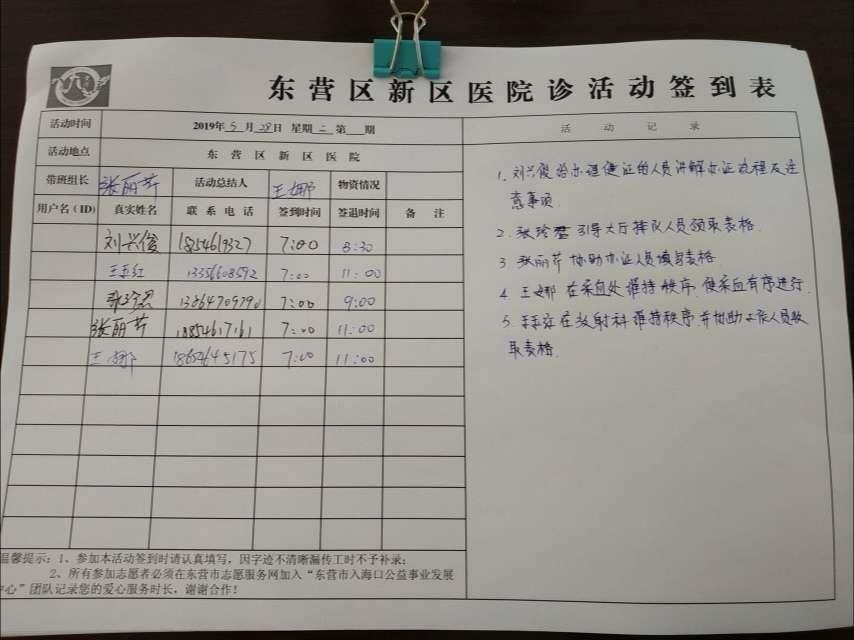 东营区新区医院诊活动签到表
活动时间 2019年5月28日 星期二 第 期 活动记录
活动地点 东营区新区医院
带班组长 张丽芹 活动总结人 王娜 物资情况
用户名(ID) 真实姓名 联系电话 签到时间 签退时间 备注
刘兴俊 18254619327 7:00 8:30
13356608592 7:00 11:00
7:00 9:00
张丽芹 18854617161 7:00 11:00
王娜 18654645175 7:00 11:00
1. 刘兴俊给办理健证的人员讲解办证流程及注
意事项.
2. 张珍君引导大厅排队人员领取表格.
3 张丽芹协助办证人员填写表格
4 王娜在采血处维持秩序,使采血有序进行.
5. 在放射科维持秩序.并协助工作人员收
取表格.
温馨提示:1、参加本活动签到时请认真填写,因字迹不清晰漏传工时不予补录;
2、所有参加志愿者必须在东营市志愿服务网加入“东营市入海口公益事业发展
中心”团队记录您的爱心服务时长,谢谢合作!